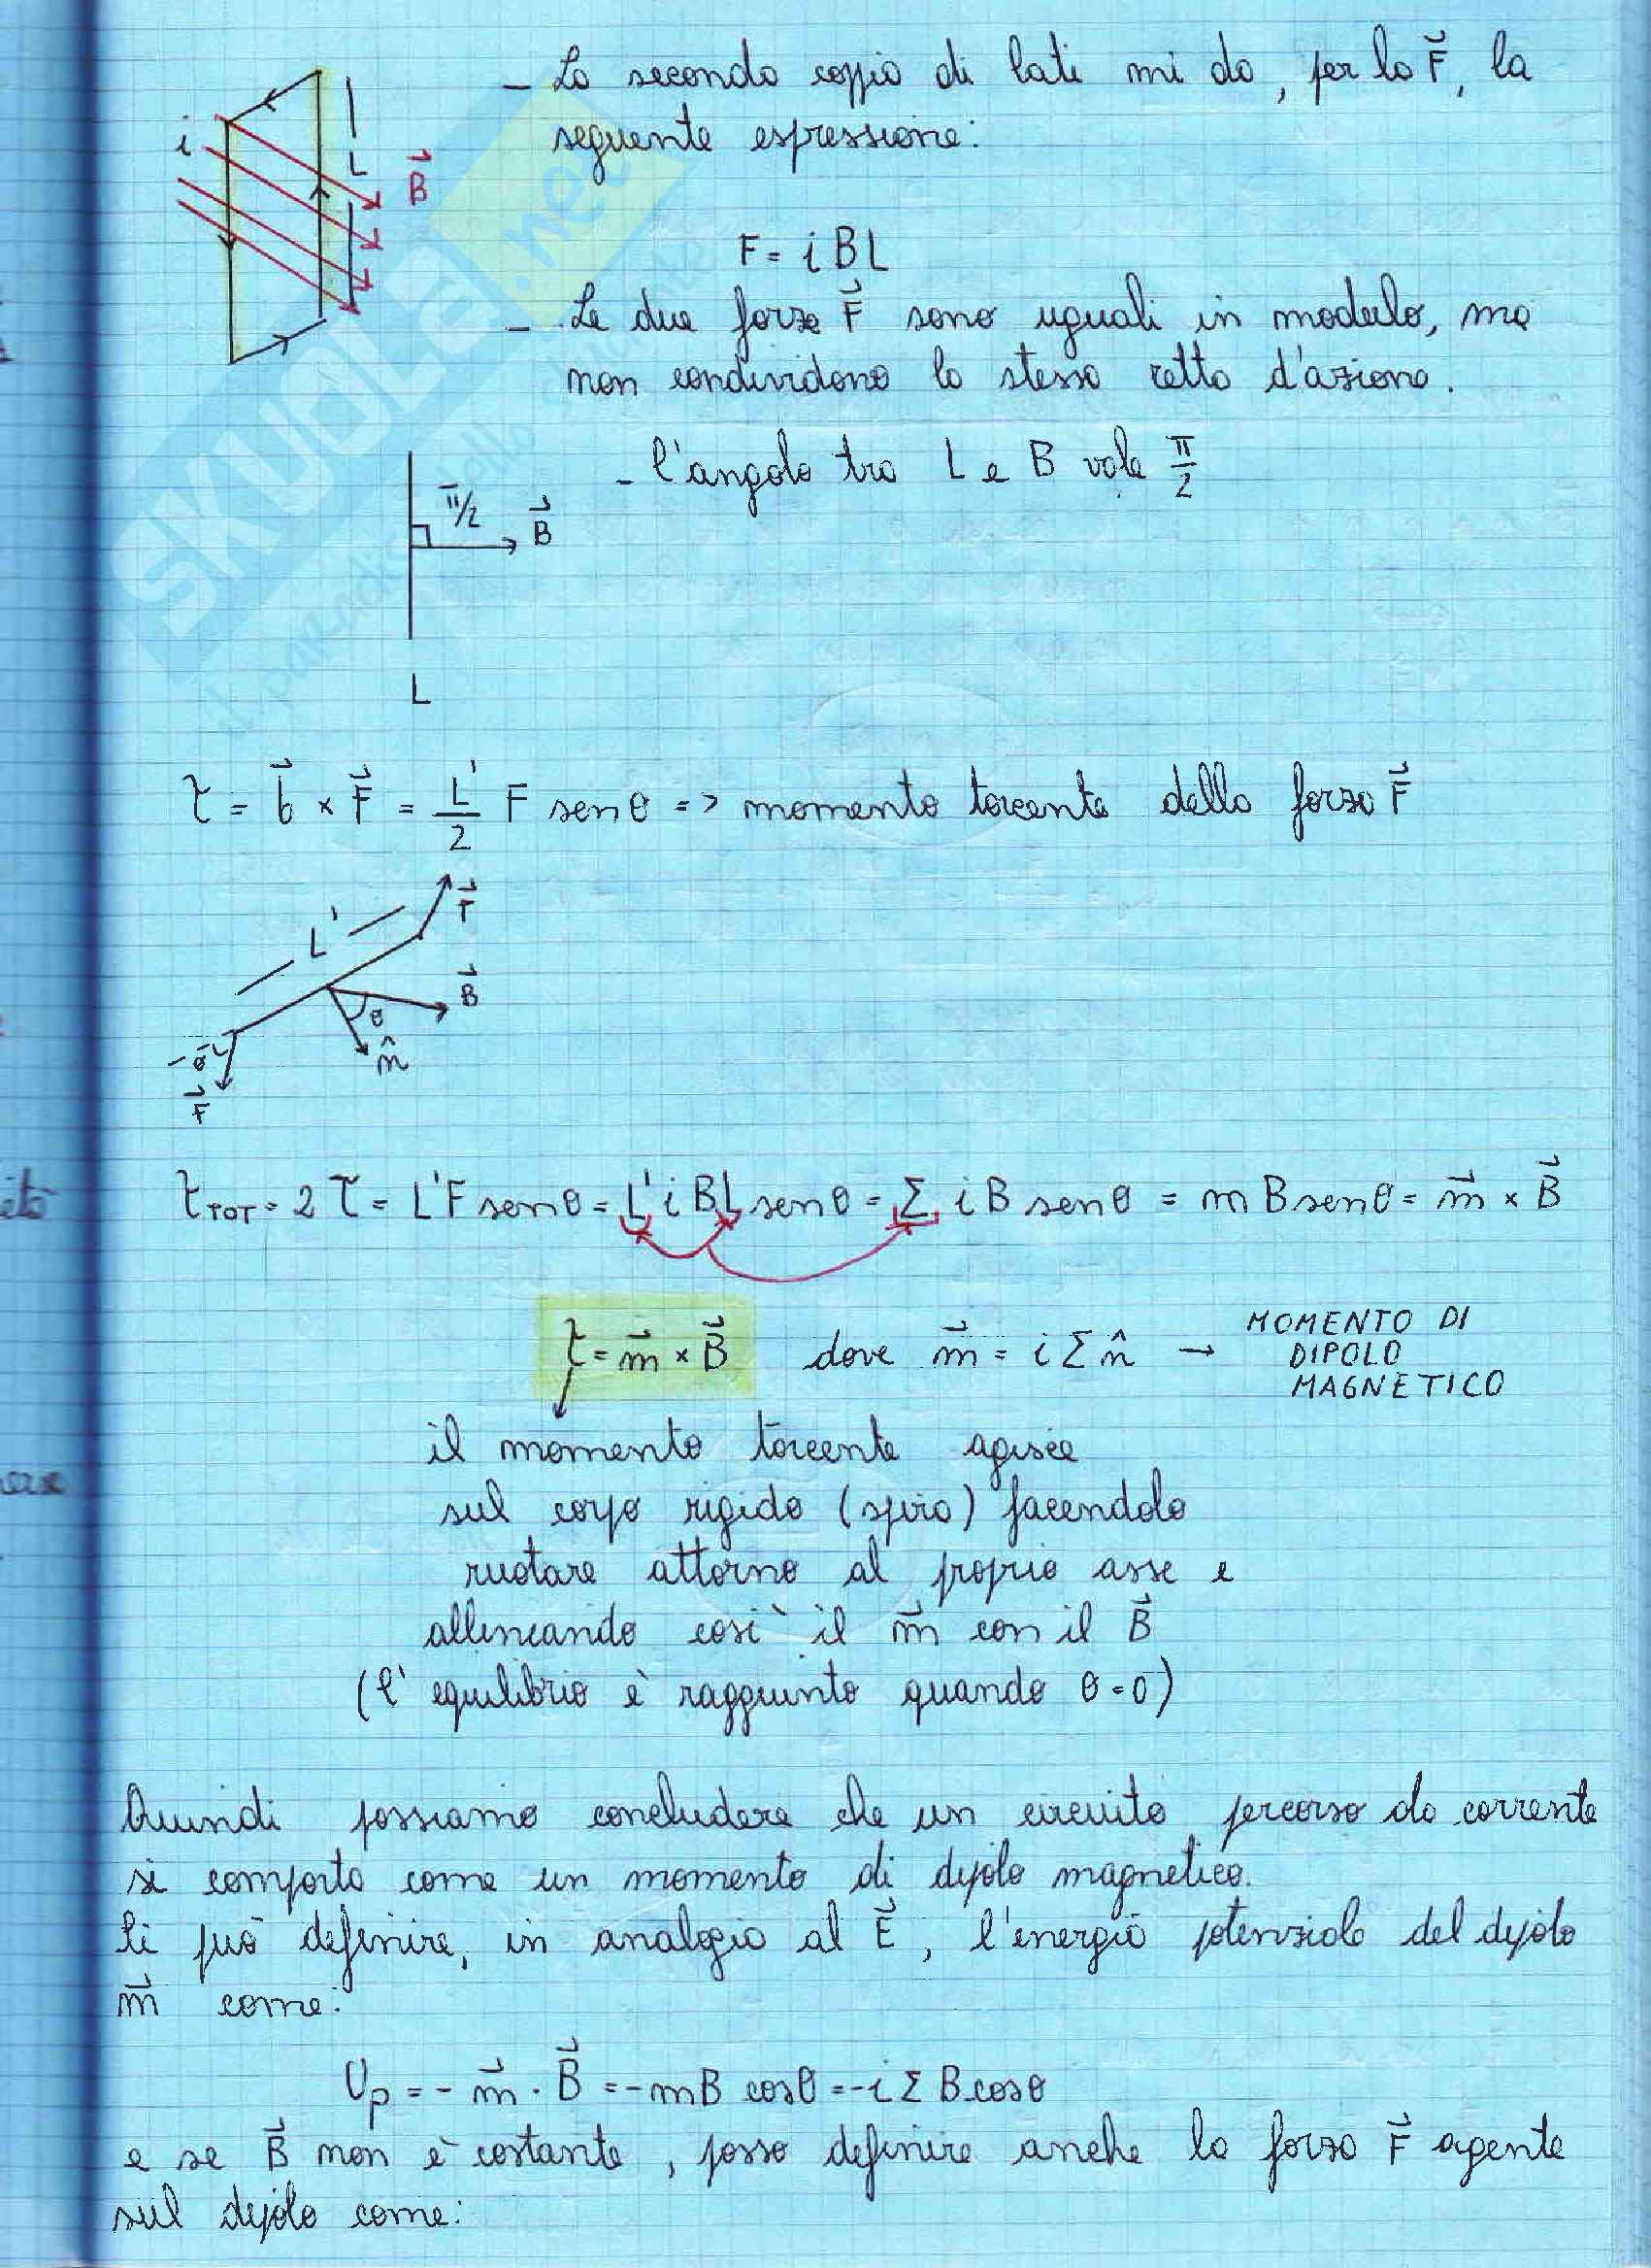 - La seconda coppia di lati mi da, per la F⃗, la
seguente espressione:
i
L
B⃗
F = i B L
- Le due forze F⃗ sono uguali in modulo, ma
non condividono la stessa retta d'azione.
- l'angolo tra L e B vale π/2
π/2
B⃗
L
τ = b⃗ × F⃗ = L'/2 F senθ => momento torcente della forza F⃗
L'
F⃗
B⃗
θ
n̂
F⃗
τTOT = 2 τ = L'F senθ = L' i B L senθ = Σ i B senθ = m B senθ = m⃗ × B⃗
τ = m⃗ × B⃗ dove m⃗ = i Σ n̂ → MOMENTO DI
DIPOLO
MAGNETICO
il momento torcente agisce
sul corpo rigido (spira) facendolo
ruotare attorno al proprio asse e
allineando così il m⃗ con il B⃗
(l'equilibrio è raggiunto quando θ = 0)
Quindi possiamo concludere che un circuito percorso da corrente
si comporta come un momento di dipolo magnetico.
Si può definire, in analogia al E⃗, l'energia potenziale del dipolo
m⃗ come:
Up = - m⃗ · B⃗ = - m B cosθ = - i Σ B cosθ
e se B⃗ non è costante, posso definire anche la forza F⃗ agente
sul dipolo come:
SKUOLA.net